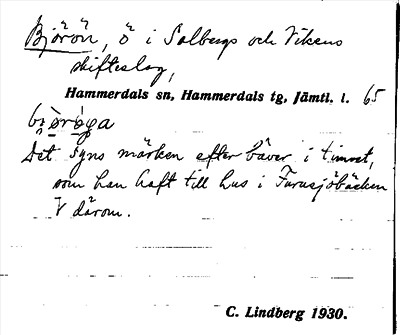 Björön, ö i Solbergs och Vikens
skifteslag,
Hammerdals sn, Hammerdals tg, Jämtl. l. 65
Det syns märken efter bäver i timret,
som han haft till hus i Furusjöbäcken
V därom.
C. Lindberg 1930.